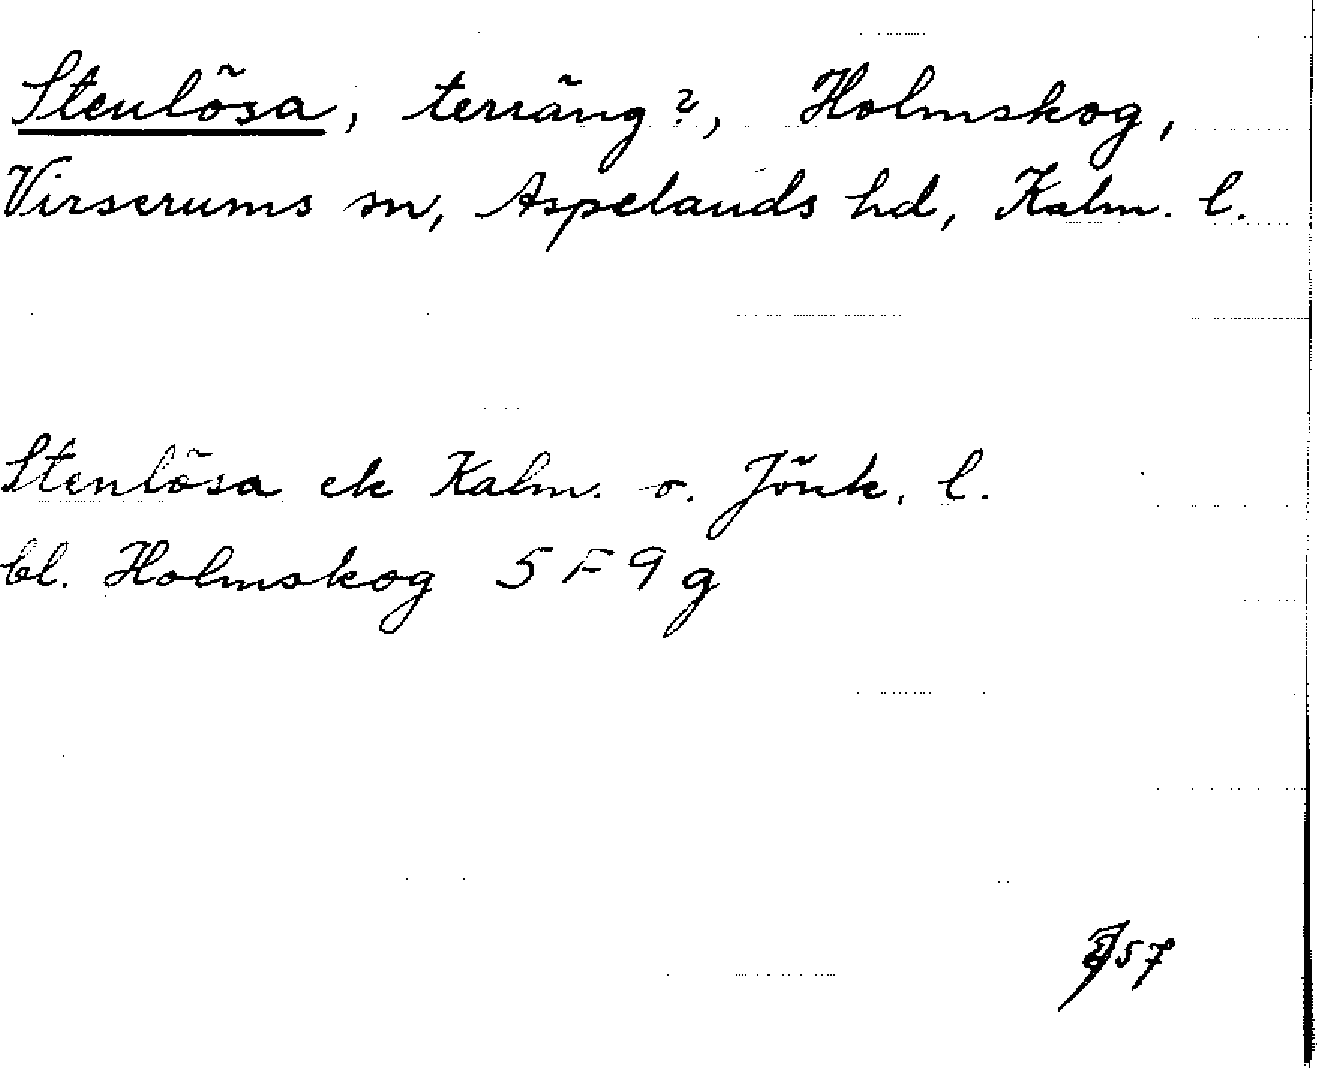 Stenlösa, terräng?, Holmskog,
Virserums sn, Aspelands hd, Kalm. l.
Stenlösa ek Kalm. o. Jönk. l.
bl. Holmskog 5 F 9 g
57